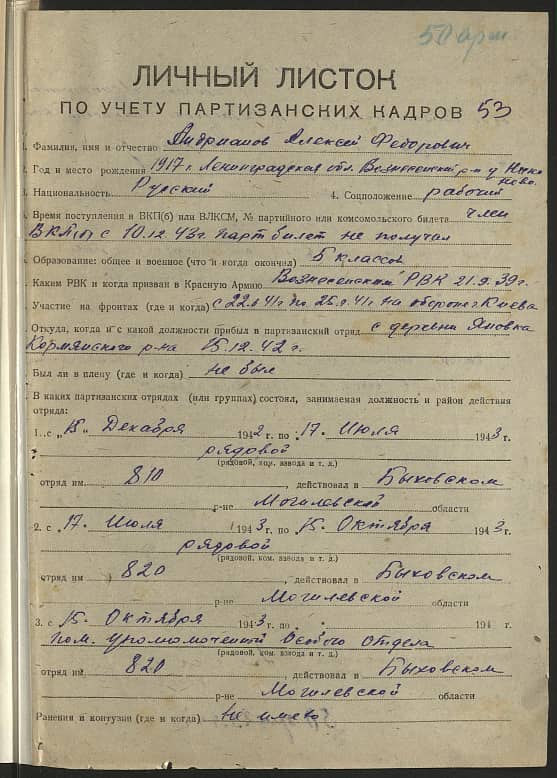 50 арм
ЛИЧНЫЙ ЛИСТОК
ПО УЧЕТУ ПАРТИЗАНСКИХ КАДРОВ 53
1. Фамилия, имя и отчество Андрианов Алексей Федорович
2. Год и место рождения 1917 г. Ленинградская обл. Вознесенский р-н д.
3. Национальность Русский 4. Соцположение рабочий
5. Время поступления в ВКП(б) или ВЛКСМ, № партийного или комсомольского билета член
ВКП(б) с 10.12.43г. партбилет не получал
6. Образование: общее и военное (что и когда окончил) 5 классов
. Каким РВК и когда призван в Красную Армию Вознесенский РВК 21.9.39г.
. Участие на фронтах (где и когда) с 22.6.41г. по 26.9.41 на обороне г Киева
. Откуда, когда и с какой должности прибыл в партизанский отряд с деревни Ямовка
Кормянского р-на 15.12.42г.
Был ли в плену (где и когда) не был
. В каких партизанских отрядах (или группах) состоял, занимаемая должность и район действия
отряда:
1. с „15" Декабря 1942 г. по „17. Июля 1943 г.
рядовой
(рядовой, ком. взвода и т. д.)
отряд им. 810, действовал в Быховском
р-не Могилевской области
2. с „17. Июля 1943 г. по „15. Октября 1943 г.
рядовой
(рядовой, ком. взвода и т. д.)
отряд им 820, действовал в Быховском
р-не Могилевской области
3. с „15. Октября 1943 г. по „ 194 г.
пом. уполномоченный Особого отдела
(рядовой, ком. взвода и т. д.)
отряд им. 820 действовал в Быховском
р-не Могилевской области
Ранения и контузии (где и когда) не имею